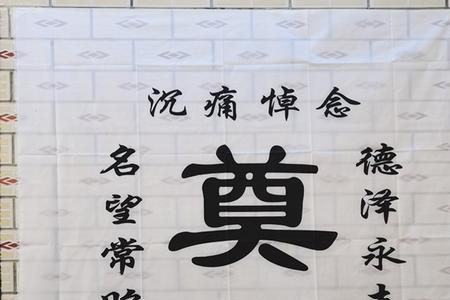 沉痛悼念
德泽永
奠
名望常